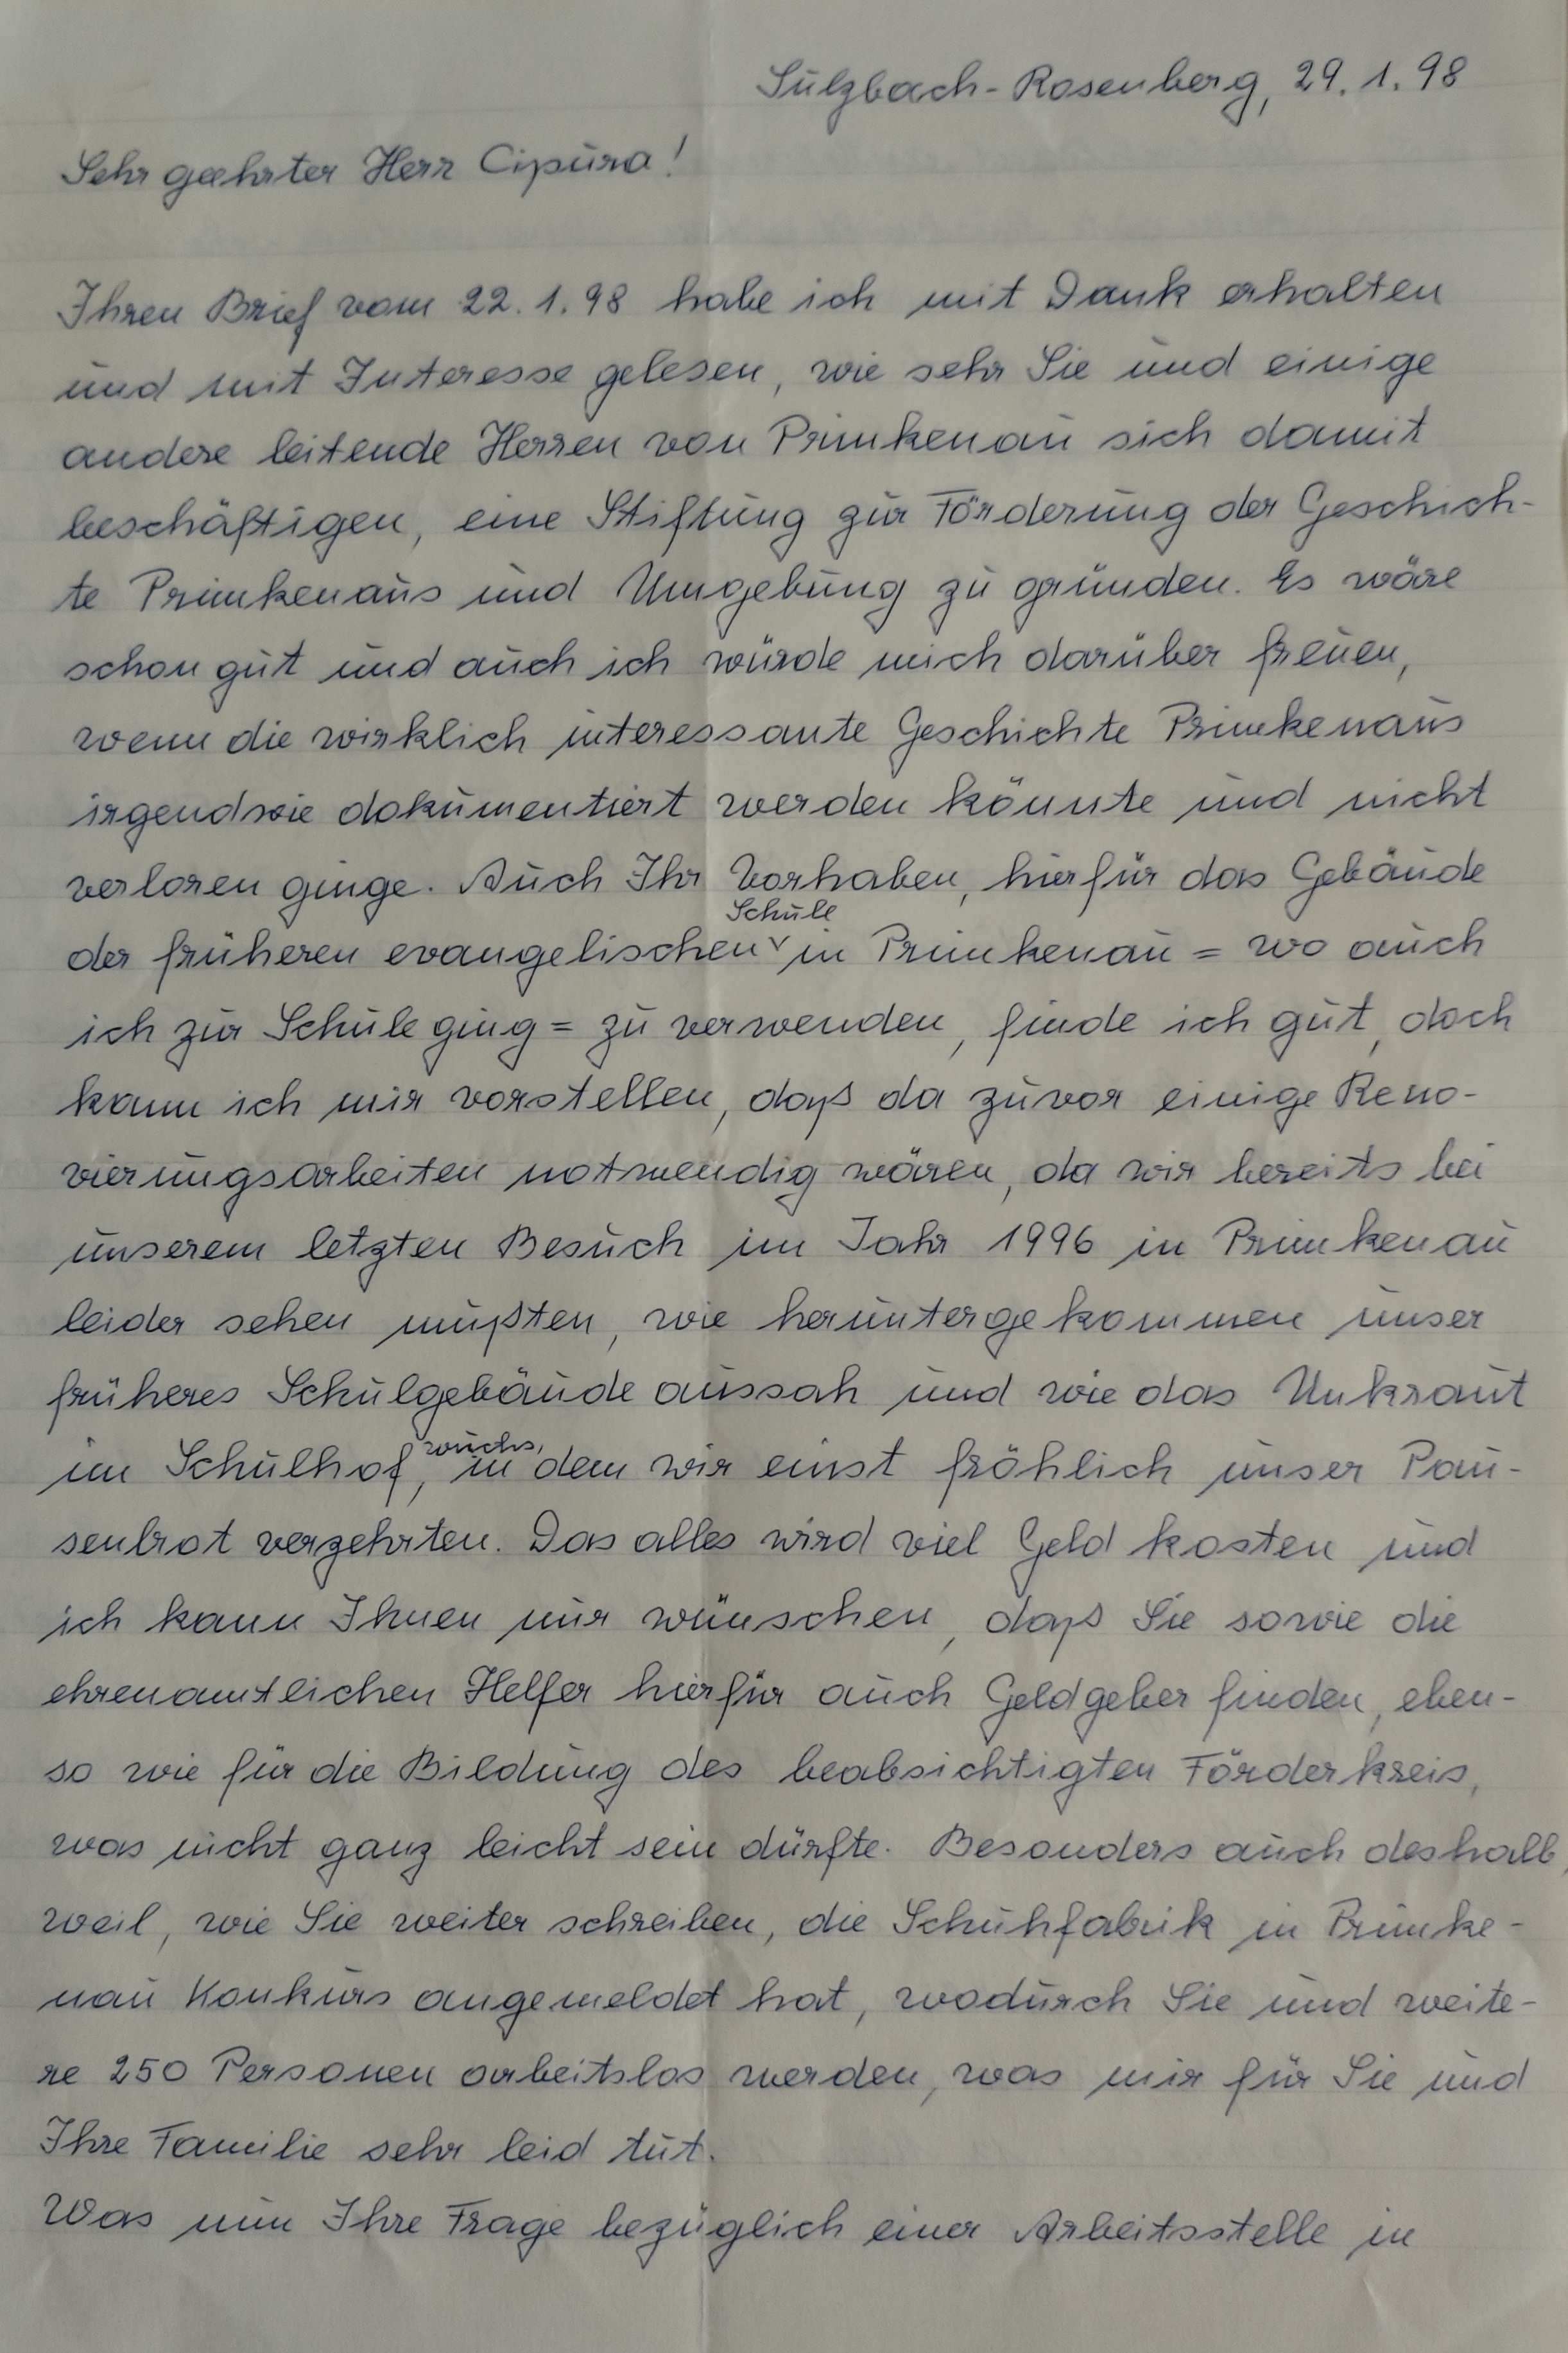 Sulzbach-Rosenberg, 29.1.98
Sehr geehrter Herr Cipura!
Ihren Brief vom 22.1.98 habe ich mit Dank erhalten
und mit Interesse gelesen, wie sehr Sie und einige
andere leitende Herren von Primkenau sich damit
beschäftigen, eine Stiftung zur Förderung der Geschich-
te Primkenaus und Umgebung zu gründen. Es wäre
schon gut und auch ich würde mich darüber freuen,
wenn die wirklich interessante Geschichte Primkenaus
irgendwie dokumentiert werden könnte und nicht
verloren ginge. Auch Ihr Vorhaben, hierfür das Gebäude
Schule
der früheren evangelischen in Primkenau = wo auch
ich zur Schule ging = zu verwenden, finde ich gut, doch
kann ich mir vorstellen, daß da zuvor einige Reno-
vierungsarbeiten notwendig wären, da wir bereits bei
unserem letzten Besuch im Jahr 1996 in Primkenau
leider sehen mußten, wie heruntergekommen unser
früheres Schulgebäude aussah und wie das Unkraut
wuchs,
im Schulhof, in dem wir einst fröhlich unser Pau-
senbrot verzehrten. Das alles wird viel Geld kosten und
ich kann Ihnen nur wünschen, daß Sie sowie die
ehrenamtlichen Helfer hierfür auch Geldgeber finden, eben-
so wie für die Bildung des beabsichtigten Förderkreis,
was nicht ganz leicht sein dürfte. Besonders auch deshalb,
weil, wie Sie weiter schreiben, die Schuhfabrik in Primke-
nau Konkurs angemeldet hat, wodurch Sie und weite-
re 250 Personen arbeitslos werden, was mir für Sie und
Ihre Familie sehr leid tut.
Was nun Ihre Frage bezüglich einer Arbeitsstelle in